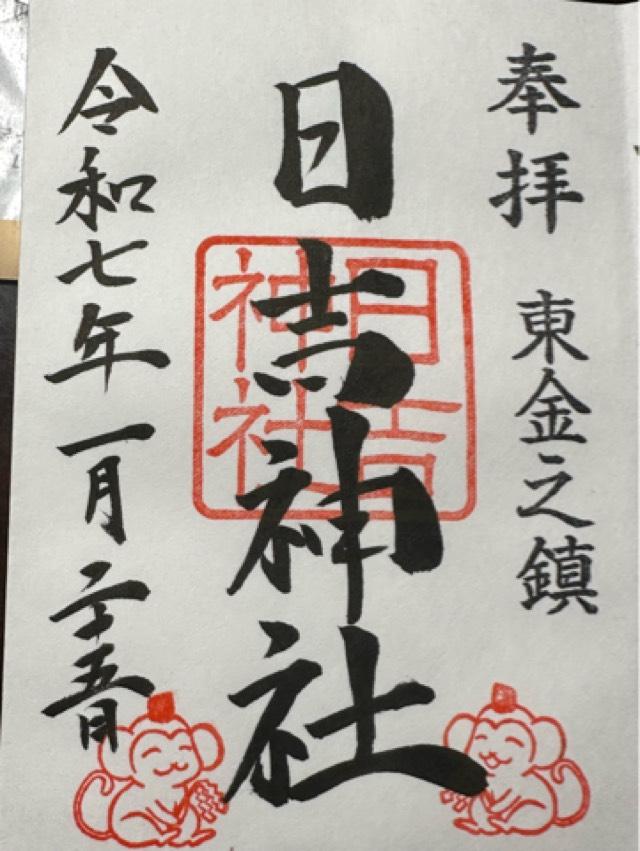 奉拝 東金之鎮
日吉神社
日吉神社
令和七年一月二十五日